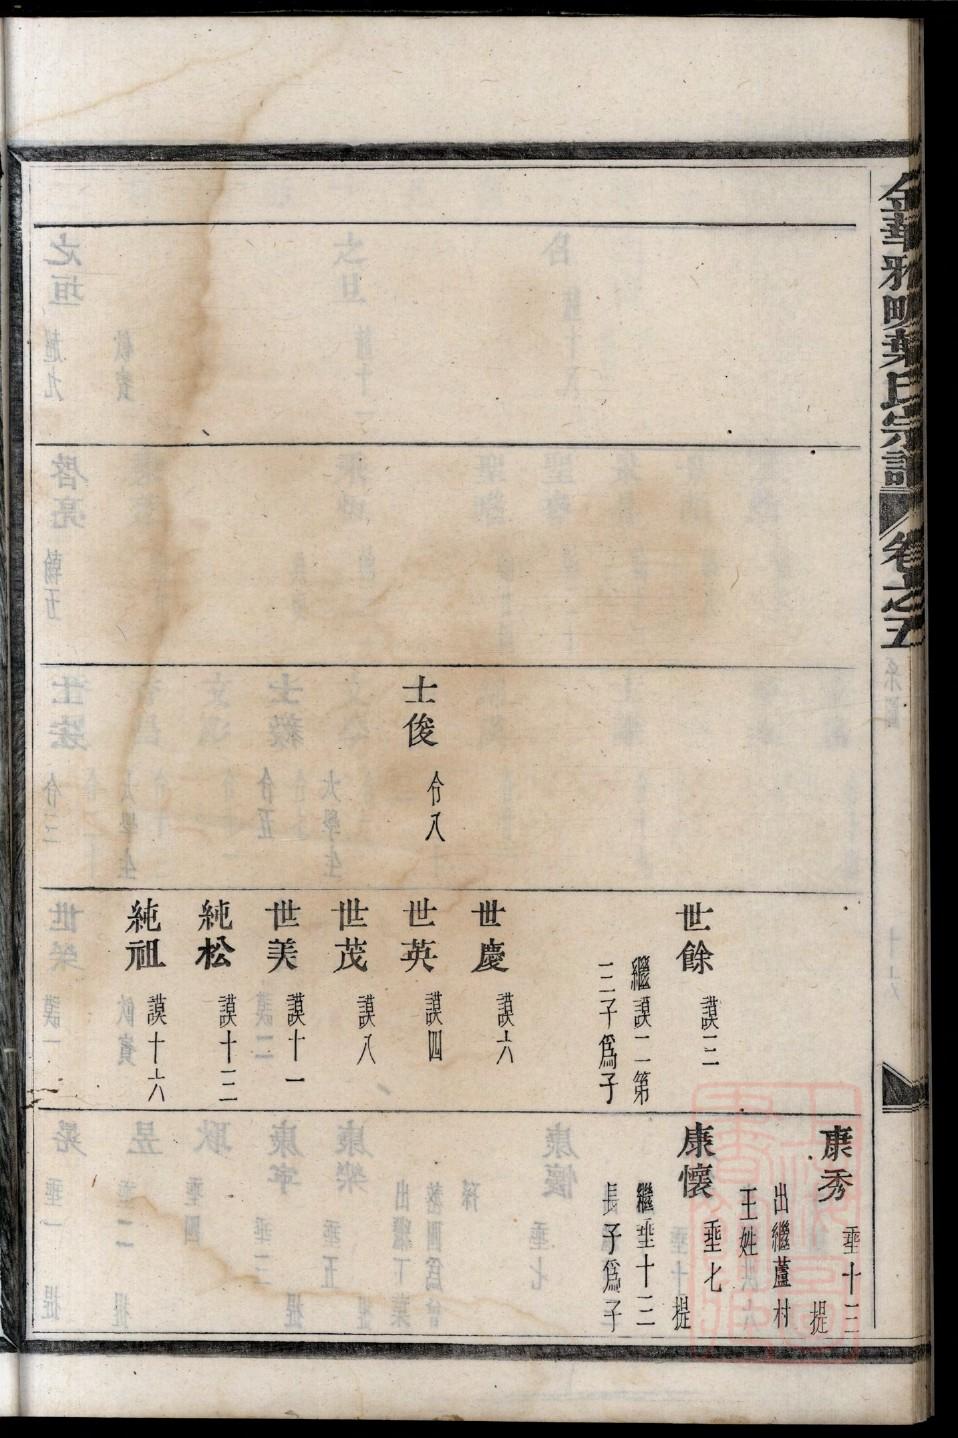 金華雅畈葉氏宗譜 卷之五
士俊 令八
世餘 謨三
繼謨二第
三子爲子
世慶 謨六
世英 謨四
世茂 謨八
世美 謨十一
純松 謨十三
純祖 謨十六
康秀 垂十二 提
出繼蘆村
王姓
康懷 垂七 提
繼垂十三
長子爲子